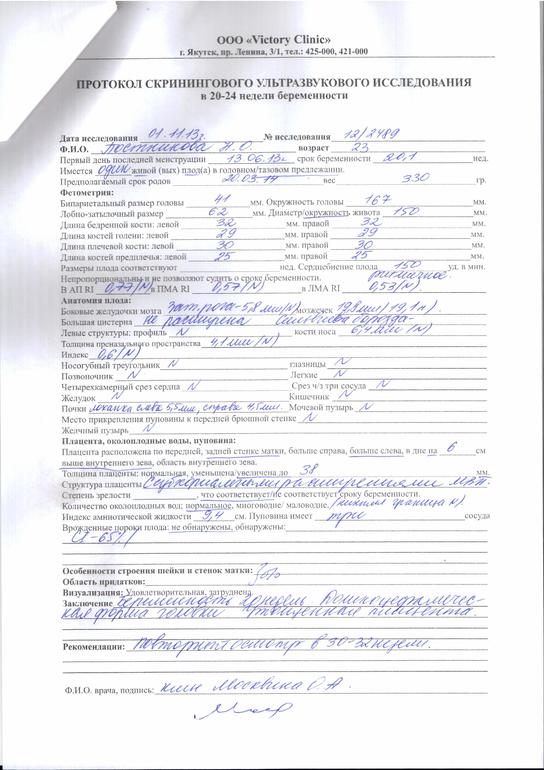 ООО «Victory Clinic»
г. Якутск, пр. Ленина, 3/1, тел.: 425-000, 421-000
ПРОТОКОЛ СКРИНИНГОВОГО УЛЬТРАЗВУКОВОГО ИССЛЕДОВАНИЯ
в 20-24 недели беременности
Дата исследования 01.11.13г. № исследования 12/2489
Ф.И.О. Постникова Н.О. возраст 23
Первый день последней менструации 13.06.13г. срок беременности 20,1 нед.
Имеется один живой (вых) плод(а) в головном/тазовом предлежании.
Предполагаемый срок родов 20.03.14 вес 330 гр.
Фетометрия:
Бипариетальный размер головы 41 мм. Окружность головы 167 мм.
Лобно-затылочный размер 62 мм. Диаметр/окружность живота 150 мм.
Длина бедренной кости: левой 32 мм. правой 32 мм.
Длина костей голени: левой 29 мм. правой 29 мм.
Длина плечевой кости: левой 30 мм. правой 30 мм.
Длина костей предплечья: левой 25 мм. правой 25 мм.
Размеры плода соответствуют нед. Сердцебиение плода 150 уд. в мин.
Непропорциональны и не позволяют судить о сроке беременности. ритмичное.
В АП RI 0,77/N/ в ПМА RI 0,57/N/ в ЛМА RI 0,53/N/
Анатомия плода:
Боковые желудочки мозга зат. рога-5,8 мм/N/ мозжечок 19,8 мм/ 19,1 н/.
Большая цистерна не расширена Сильвиева борозда-
Левые структуры: профиль N кости носа 6,4 мм /N/
Толщина преназального пространства 4,1 мм /N/
Индекс 0,6/N/
Носогубный треугольник N глазницы N
Позвоночник N Легкие N
Четырехкамерный срез сердца N Срез ч/з три сосуда N
Желудок N Кишечник N
Почки лоханка слева 5,5мм, справа 4,5мм. Мочевой пузырь N
Место прикрепления пуповины к передней брюшной стенке N
Желчный пузырь N
Плацента, околоплодные воды, пуповина:
Плацента расположена по передней, задней стенке матки, больше справа, больше слева, в дне на 6 см
выше внутреннего зева, область внутреннего зева.
Толщина плаценты: нормальная, уменьшена/увеличена до 38 мм.
Структура плаценты С расширениями МВП.
Степень зрелости , что соответствует/не соответствует сроку беременности.
Количество околоплодных вод: нормальное, многоводие/ маловодие. /нижняя граница N/.
Индекс амниотической жидкости 9,4 см. Пуповина имеет три сосуда
Врожденные пороки плода: не обнаружены, обнаружены:
-65%/
Особенности строения шейки и стенок матки:
Область придатков: б/о
Визуализация: Удовлетворительная, затруднена
Заключение Беременность 20 недель Долихоцефаличес-
кая форма головки Утолщенная плацента.
Рекомендации: Повторный осмотр в 30-32 недели.
Ф.И.О. врача, подпись: Москвина О.А.